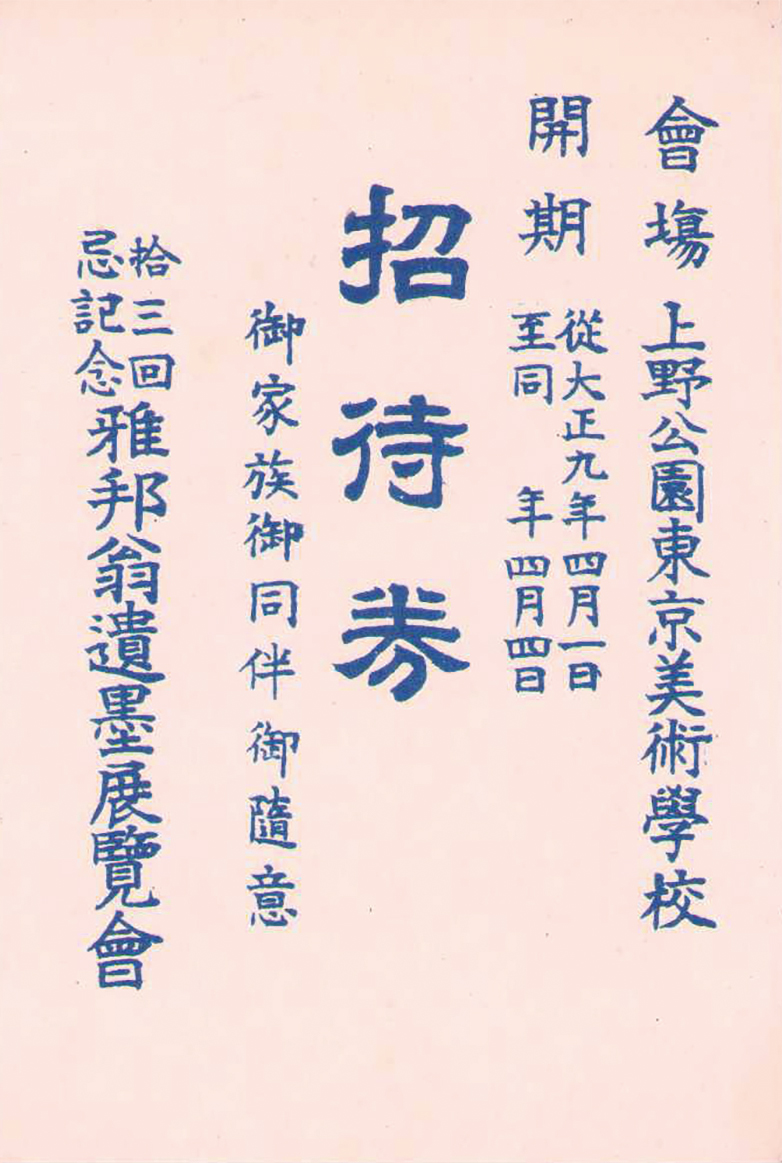 會場 上野公園東京美術學校
開期 從大正九年四月一日
至同 年四月四日
招待券
御家族御同伴御隨意
拾三回
忌記念
雅邦翁遺墨展覽會